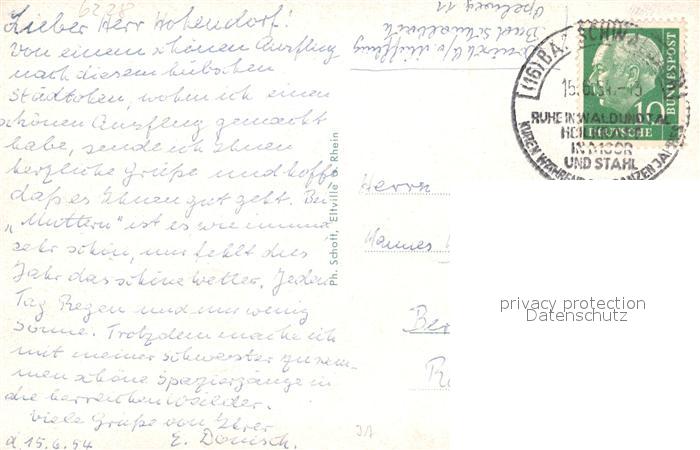 6228
Lieber Herr Hohendorf!
Von einem schönen Ausflug
nach diesem hübschen
Städtchen, wohin ich einen
schönen Ausflug gemacht
habe, sende ich Ihnen
herzliche Grüße und hoffe
daß es Ihnen gut geht. Bei
„Muttern" ist es wie immer
sehr schön, nur fehlt dies
Jahr das schöne Wetter. Jeden
Tag Regen und nur wenig
Sonne. Trotzdem mache ich
mit meiner Schwester zusam-
men schöne Spaziergänge in
die herrlichen Wälder.
Viele Grüße von Ihrer
E. Dönisch.
d. 15.6.54
Ph. Schott, Eltville a. Rhein
Bad Schwalbach
(16) BAD SCHWALBACH
15.6.54.
RUHE IN WALD UND TAL
HEILUNG
IN MOOR
UND STAHL
KUREN WÄHREND DES GANZEN JAHRES
10
DEUTSCHE
BUNDESPOST
Herrn
Hannes
Ber
privacy protection
Datenschutz